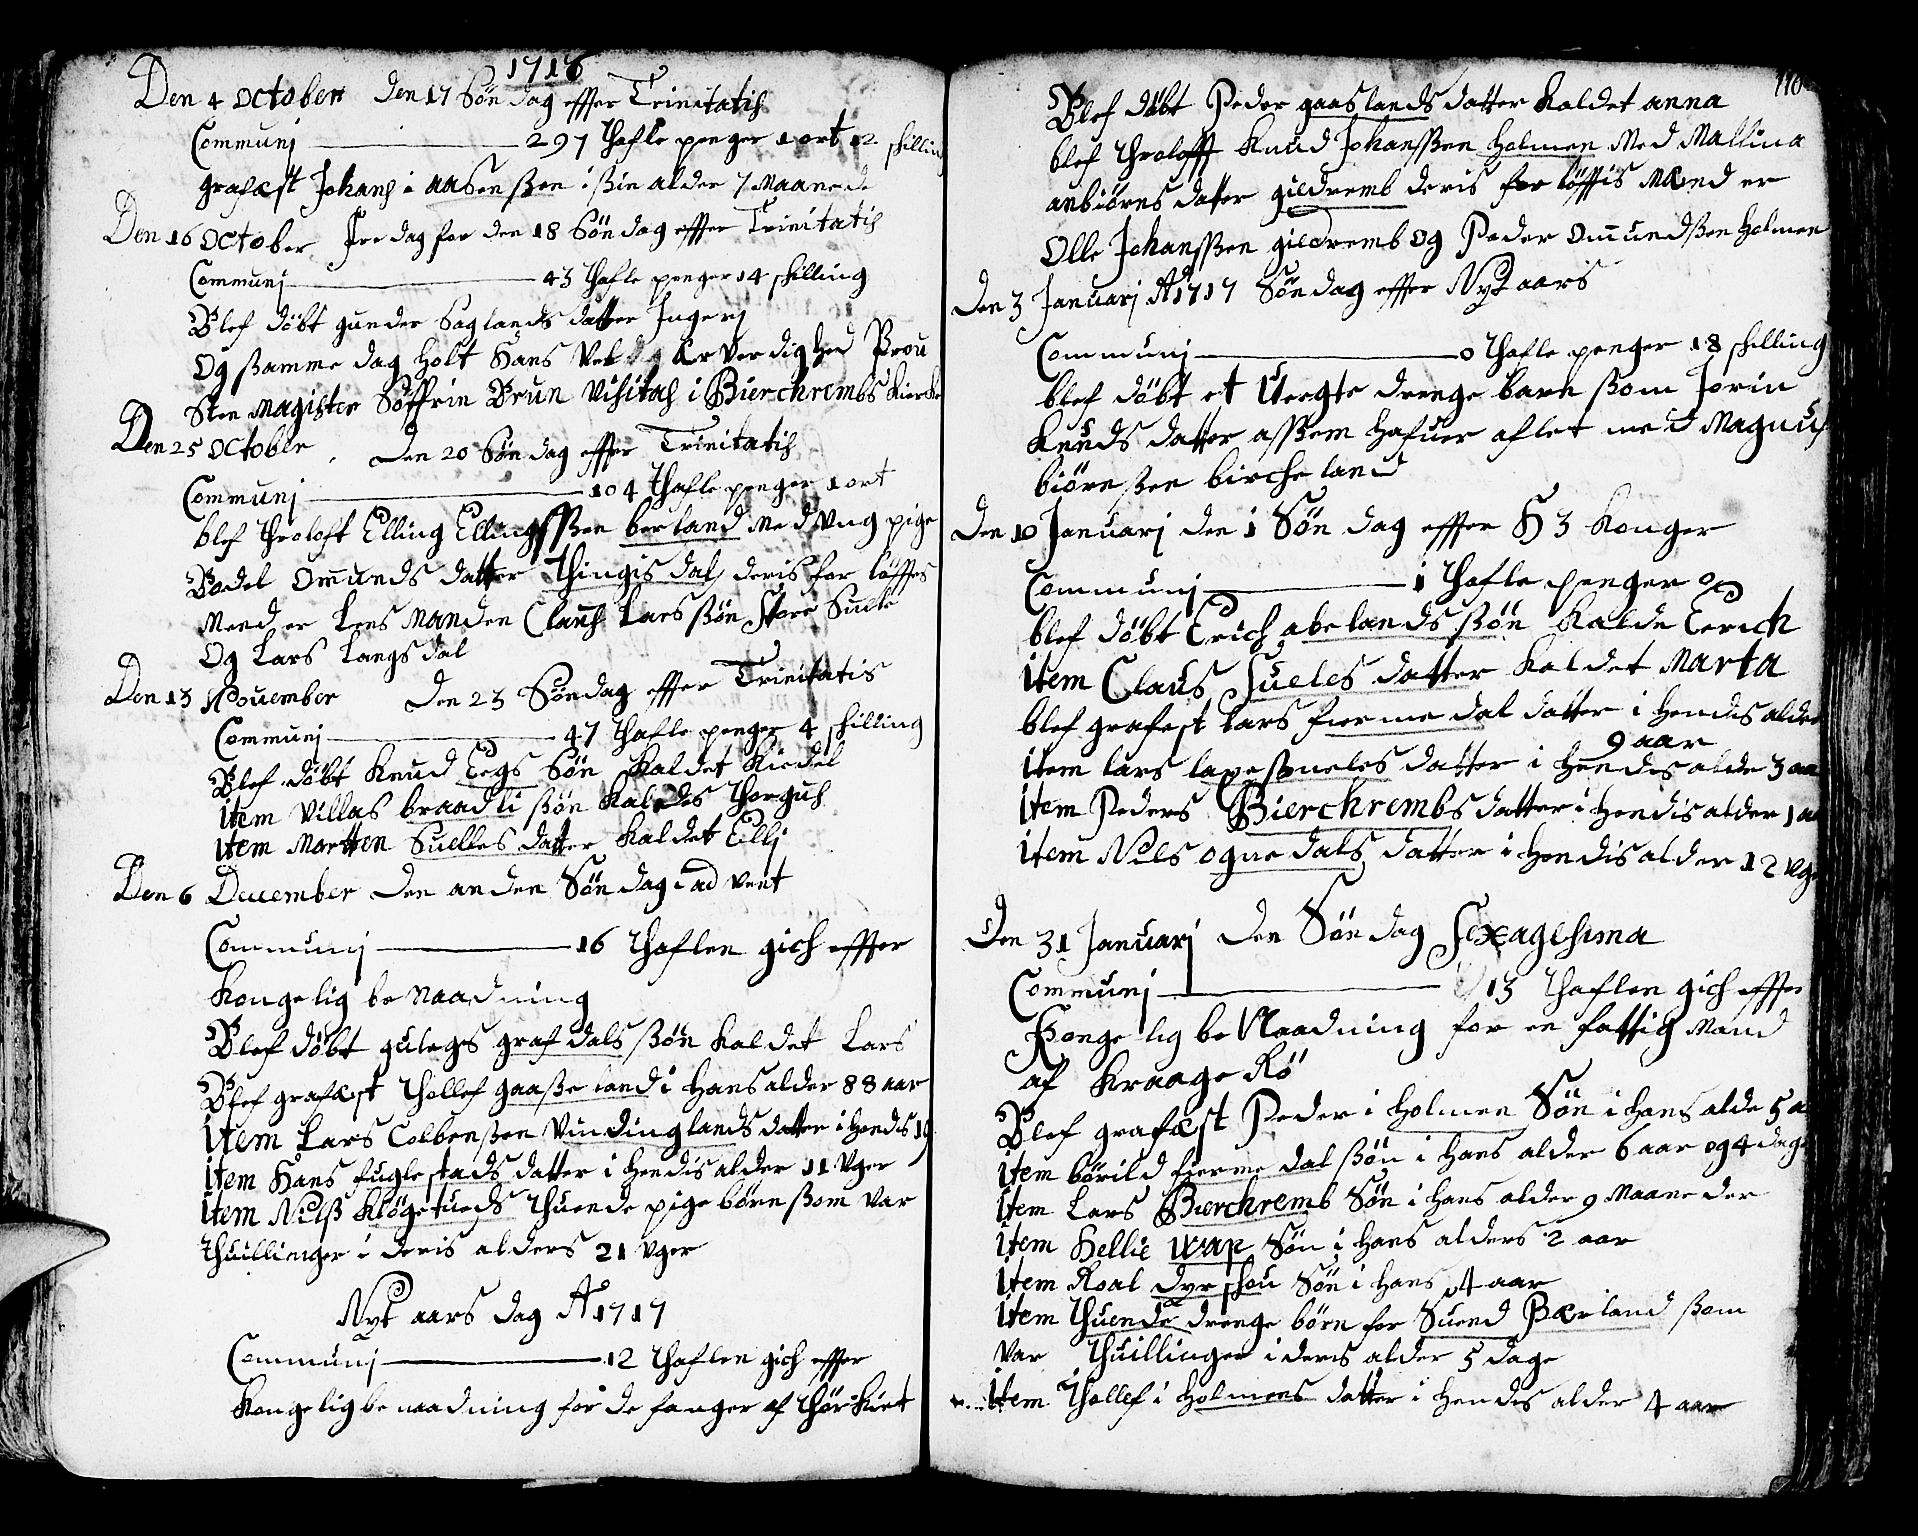 1716
Den 4 October Den 17 Søndag effter Trinitatis
Communj 297 thafle penger 1 ort 12 skilling
grafæst Johans i aasen ßøn i ßin alder 7 Maanede
Den 16 October Fredag for den 18 Søndag effter Trinitatis
Communj 43 thafle penger 14 skilling
Blef døbt gunder Saglands datter Ingerj
Og ßamme dag holt Hans Vel og ær Verdig hed Prou
Sten Magister Søffrin Brun Visitas i Bierchrembs Kircke
Den 25 October Den 20 Søndag effter Trinitatis
Communj 104 thafle penger 1 ort
blef throloft Elling Ellingßen berland Med Ung pige
Bodel Omunds datter thingis dal, deris for løfftes
Mend er Lens Manden Claus Lars ßøn Store Suele
Og Lars Langsdal
Den 13 Nouember Den 23 Søndag effter Trinitatis
Communj 47 thafle penger 4 skilling
Blef døbt Knud Eegs Søn Kaldet Kiedel
Item Villas braadli ßøn Kaldes thorgus
Item Martten Suelles datter Kaldet Ellj
Den 6 December den anden Søndag i ad vent
Communj 16 thaflen gich effter
Kongelig be Naadning
Blef døbt guleges grafdals ßøn Kaldet Lars
Blef grafæst thollef gaaßeland i Hans alder 88 aar
Item Lars Colbenßen Vindinglands datter i hendis 19
Item Hans fuglestads datter i hendis alder 11 Vger
Item Nilß Kløgetueds thuende pige børn ßom Var
thuillinger i deris alders 21 Vger
Nyt aars dag A 1717
Communj 12 thaflen gich effter
Kongelig be naadning for de fanger af thørkiet
110
Blef døbt Peder gaaslands datter Kaldet anna
blef throlofft Knud Johanßen Holmen Med Mallina
anbiørns datter gildremb deris for løfftis Mænd er
Olle Johanßen gildremb og Peder Omundßen Holmen
Den 3 Januarj A 1717 Søndag effter Nyt aars
Communj 0 thafle penger 18 skilling
blef døbt et Uegte drenge barn ßom Jorin
Knuds datter aßßem hafuer aflet med Magnus
biørnßen bircheland
Den 10 Januarj den 1 Søndag effter H 3 Konger
Communj 1 thafle penger 0
blef døbt Erich abelands ßøn Kalde Eerich
Item Claus Sueles datter Kaldet Marta
blef grafest Lars fiermedal datter i hendis alder
9 aar
Item Lars laxesuelles datter i hendis alde 3 aa
Item Peders Bierchrembs datter i hendis alder 1 aa
Item Nils ognedals datter i hendis alder 12 Vge
Den 31 Januarj den Søndag Sexagesima
Communj 13 thaflen gich effter
Konge lig be Naadning for en fattig Mand
af Kraage Rø
Blef grafæst Peder i Holmen Søn i hans alde 5 a
Item børild fierme dal ßøn i hans alder 6 aar og 4 dage
Item Lars Bierchremb Søn i hans alder 9 Maaneder
Item Hellie Søn i hans alders 2 aar
Item Roal dyrskou Søn i hans 4 aar
Item thuende drenge børn for Suend Bærland ßom
Var thuillinger i deris alder 5 dage
Item thollef i Holmens datter i hendis alder 4 aar